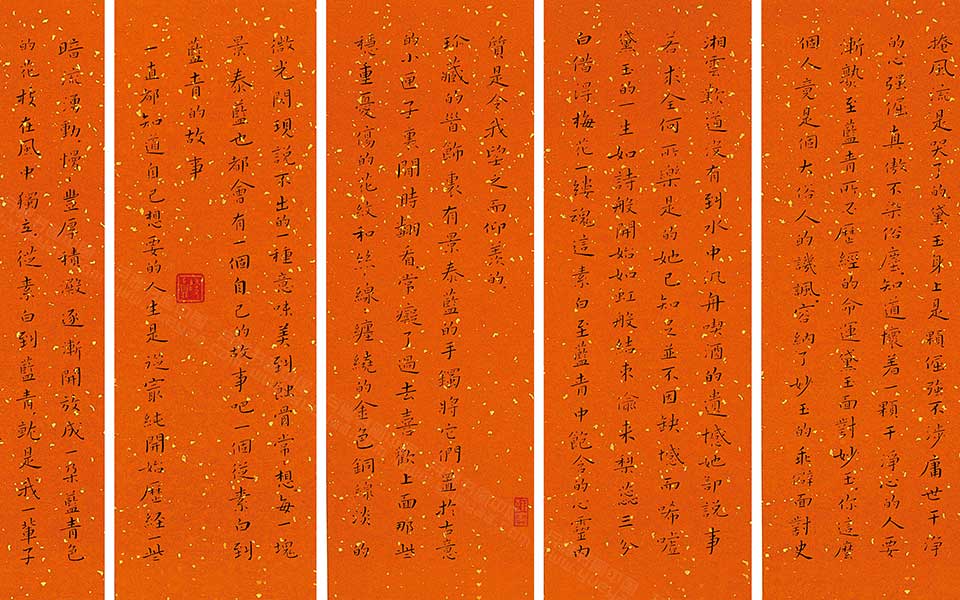 掩風流是哭了的黛玉身上是顆倔强不涉庸世干净
的心强倔真傲不染俗塵知道懷着一顆干净心的人要
漸熟至藍青所又歷經的命運黛玉面對妙玉你這麽
個人竟是個大俗人的譏諷容納了妙玉的乖僻面對史
湘雲歎道没有到水中汎舟喫酒的遺憾她卻説事
若求全何所樂是的她已知足並不因缺憾而啼嘘
黛玉的一生如詩般開始如虹般結束偷來梨蕊三分
白借得梅花一縷魂這素白至藍青中飽含的心靈内
質是令我望之而仰羡的
珍藏的首飾裏有景泰藍的手鐲將它們置於古意
的小匣子裏閒時翻看常癡了過去喜歡上面那些
穩重憂傷的花紋和絲線纏繞的金色銅線淡的
微光閃現説不出的一種意味美到蝕骨常想每一塊
景泰藍也都會有一個自己的故事吧一個從素白到
藍青的故事
一直都知道自己想要的人生是從最純開始歷經一些
暗流湧動慢慢豐厚積澱逐漸開放成一朵藍青色
的花枝在風中獨立從素白到藍青就是我一輩子